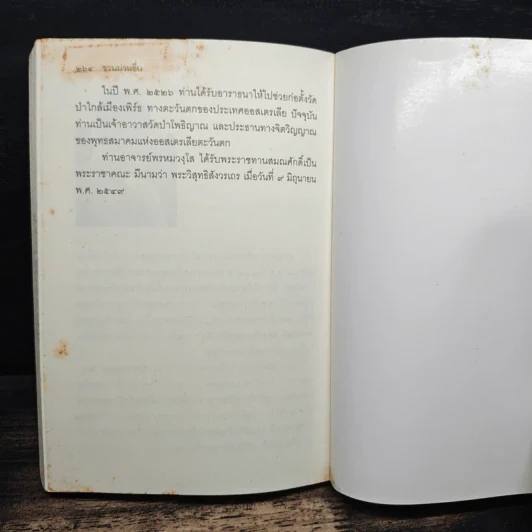 ๒๖๔ ชวนม่วนชื่น
ในปี พ.ศ. ๒๕๒๖ ท่านได้รับอาราธนาให้ไปช่วยก่อตั้งวัด
ป่าใกล้เมืองเพิร์ธ ทางตะวันตกของประเทศออสเตรเลีย ปัจจุบัน
ท่านเป็นเจ้าอาวาสวัดป่าโพธิญาณ และประธานทางจิตวิญญาณ
ของพุทธสมาคมแห่งออสเตรเลียตะวันตก
ท่านอาจารย์พรหมวงฺโส ได้รับพระราชทานสมณศักดิ์เป็น
พระราชาคณะ มีนามว่า พระวิสุทธิสังวรเถร เมื่อวันที่ ๙ มิถุนายน
พ.ศ. ๒๕๔๙